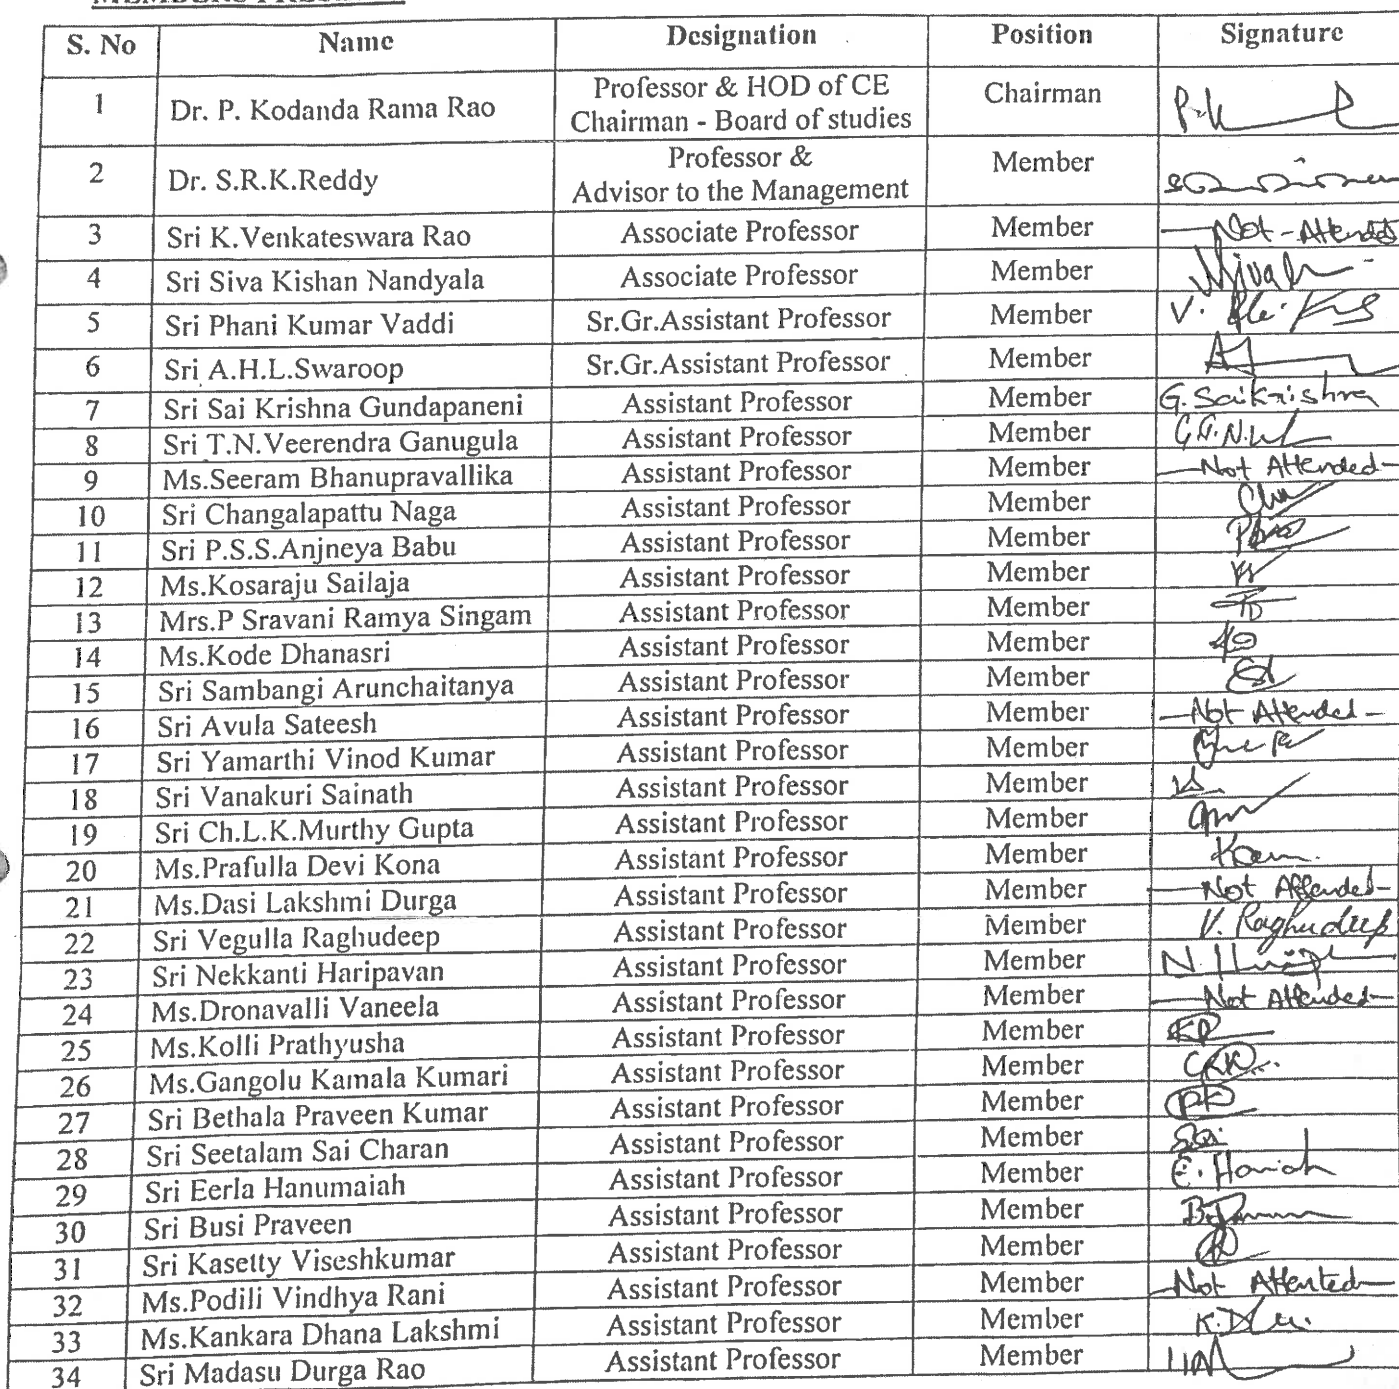 MEMBERS PRESENT
S. No Name Designation Position Signature
1 Dr. P. Kodanda Rama Rao Professor & HOD of CE Chairman
Chairman - Board of studies
2 Dr. S.R.K.Reddy Professor & Member
Advisor to the Management
3 Sri K.Venkateswara Rao Associate Professor Member Not-Attended
4 Sri Siva Kishan Nandyala Associate Professor Member
5 Sri Phani Kumar Vaddi Sr.Gr.Assistant Professor Member
6 Sri A.H.L.Swaroop Sr.Gr.Assistant Professor Member
7 Sri Sai Krishna Gundapaneni Assistant Professor Member G. Saikrishna
8 Sri T.N.Veerendra Ganugula Assistant Professor Member
9 Ms.Seeram Bhanupravallika Assistant Professor Member Not Attended
10 Sri Changalapattu Naga Assistant Professor Member
11 Sri P.S.S.Anjneya Babu Assistant Professor Member
12 Ms.Kosaraju Sailaja Assistant Professor Member
13 Mrs.P Sravani Ramya Singam Assistant Professor Member
14 Ms.Kode Dhanasri Assistant Professor Member
15 Sri Sambangi Arunchaitanya Assistant Professor Member
16 Sri Avula Sateesh Assistant Professor Member Not Attended
17 Sri Yamarthi Vinod Kumar Assistant Professor Member
18 Sri Vanakuri Sainath Assistant Professor Member
19 Sri Ch.L.K.Murthy Gupta Assistant Professor Member
20 Ms.Prafulla Devi Kona Assistant Professor Member
21 Ms.Dasi Lakshmi Durga Assistant Professor Member Not Attended
22 Sri Vegulla Raghudeep Assistant Professor Member V. Raghudeep
23 Sri Nekkanti Haripavan Assistant Professor Member
24 Ms.Dronavalli Vaneela Assistant Professor Member Not Attended
25 Ms.Kolli Prathyusha Assistant Professor Member
26 Ms.Gangolu Kamala Kumari Assistant Professor Member
27 Sri Bethala Praveen Kumar Assistant Professor Member
28 Sri Seetalam Sai Charan Assistant Professor Member
29 Sri Eerla Hanumaiah Assistant Professor Member
30 Sri Busi Praveen Assistant Professor Member
31 Sri Kasetty Viseshkumar Assistant Professor Member
32 Ms.Podili Vindhya Rani Assistant Professor Member Not Attented
33 Ms.Kankara Dhana Lakshmi Assistant Professor Member
34 Sri Madasu Durga Rao Assistant Professor Member